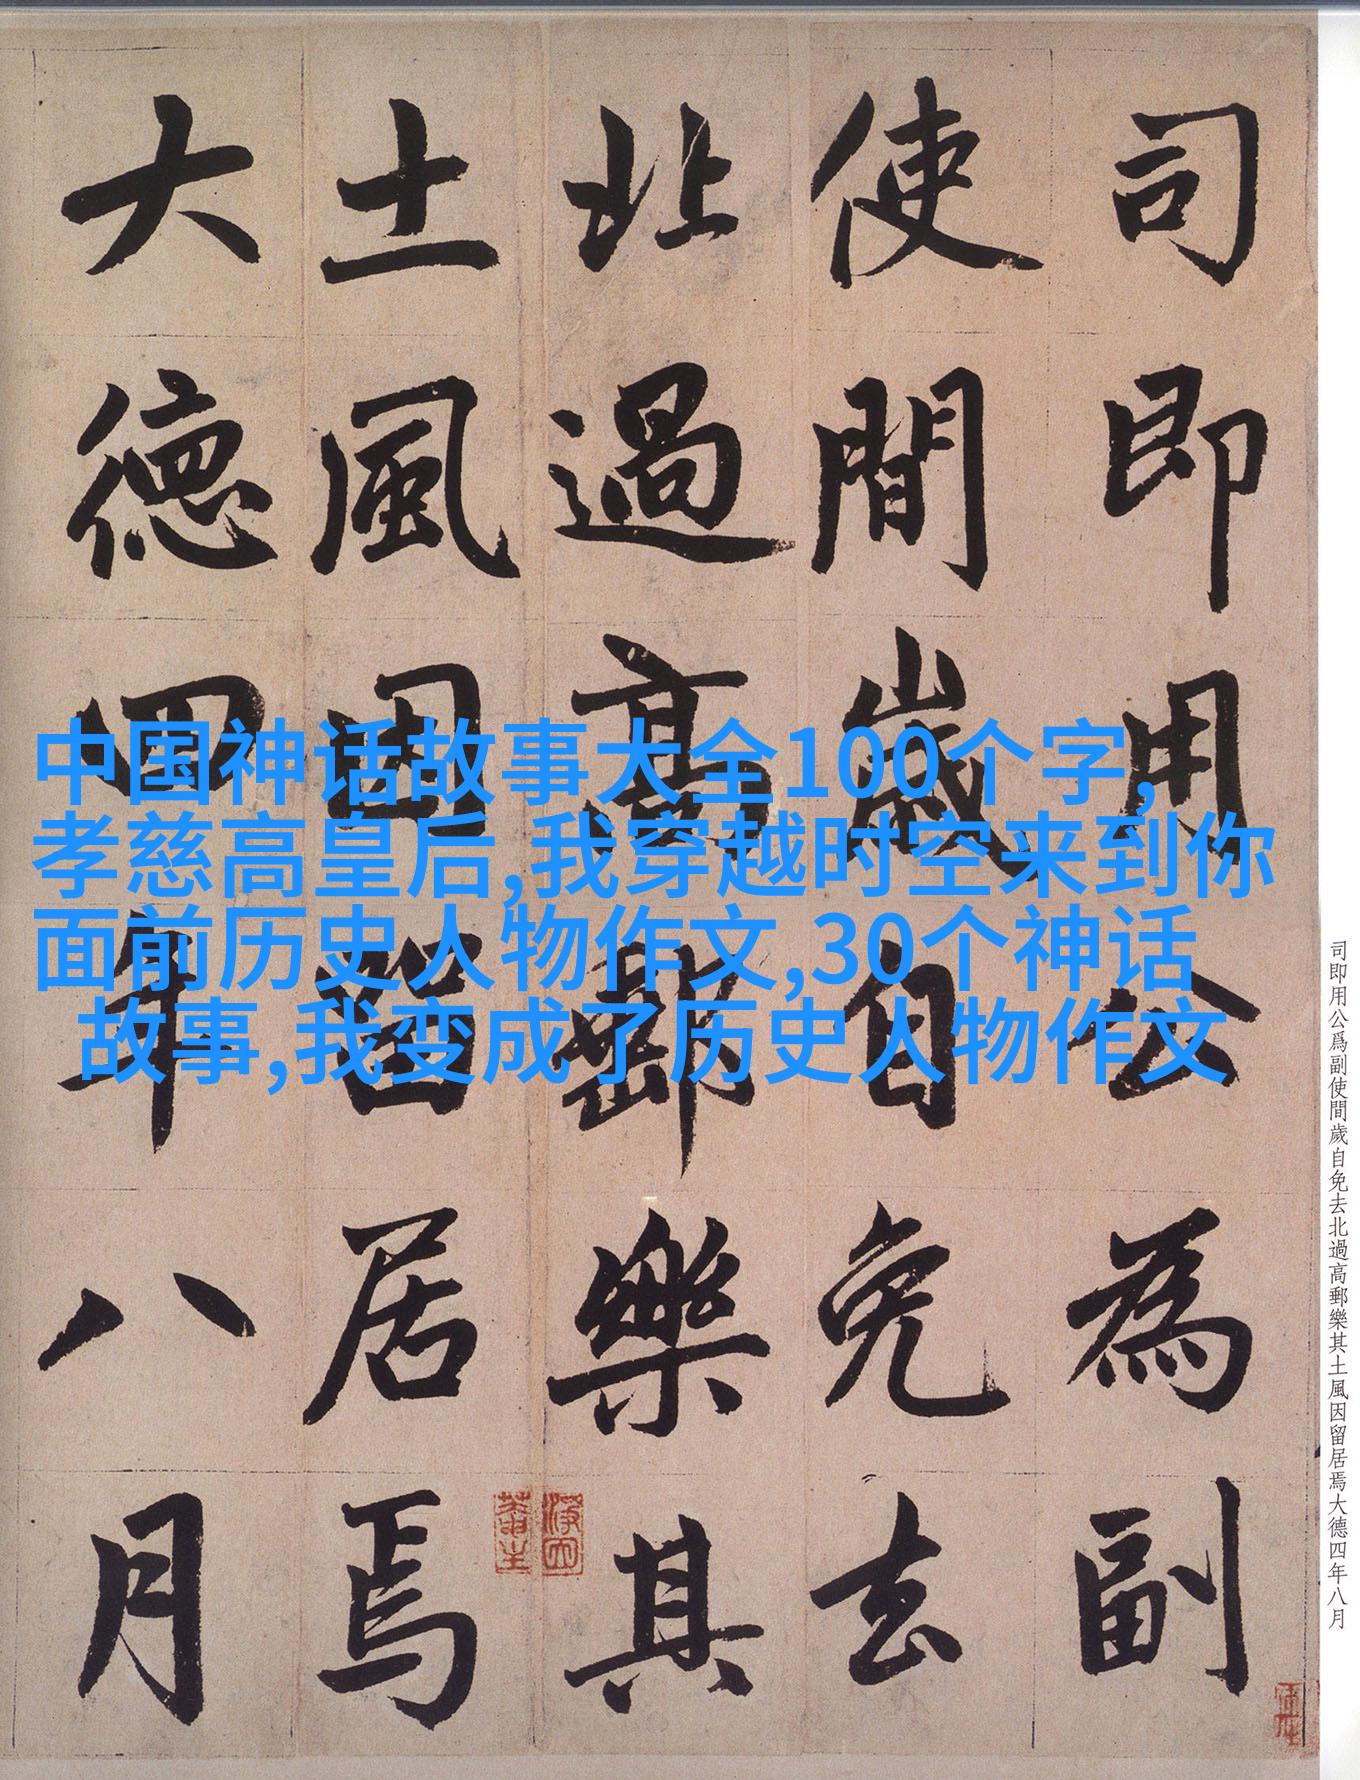 司即用公為副
使間歲自免去
北過高郵樂其
土風因留居焉
大德四年八月
中国神话故事大全100个字,
孝慈高皇后,我穿越时空来到你
面前历史人物作文,30个神话
故事,我变成了历史人物作文
司即用公爲副使間歲自免去北過高郵樂其土風因留居焉大德四年八月